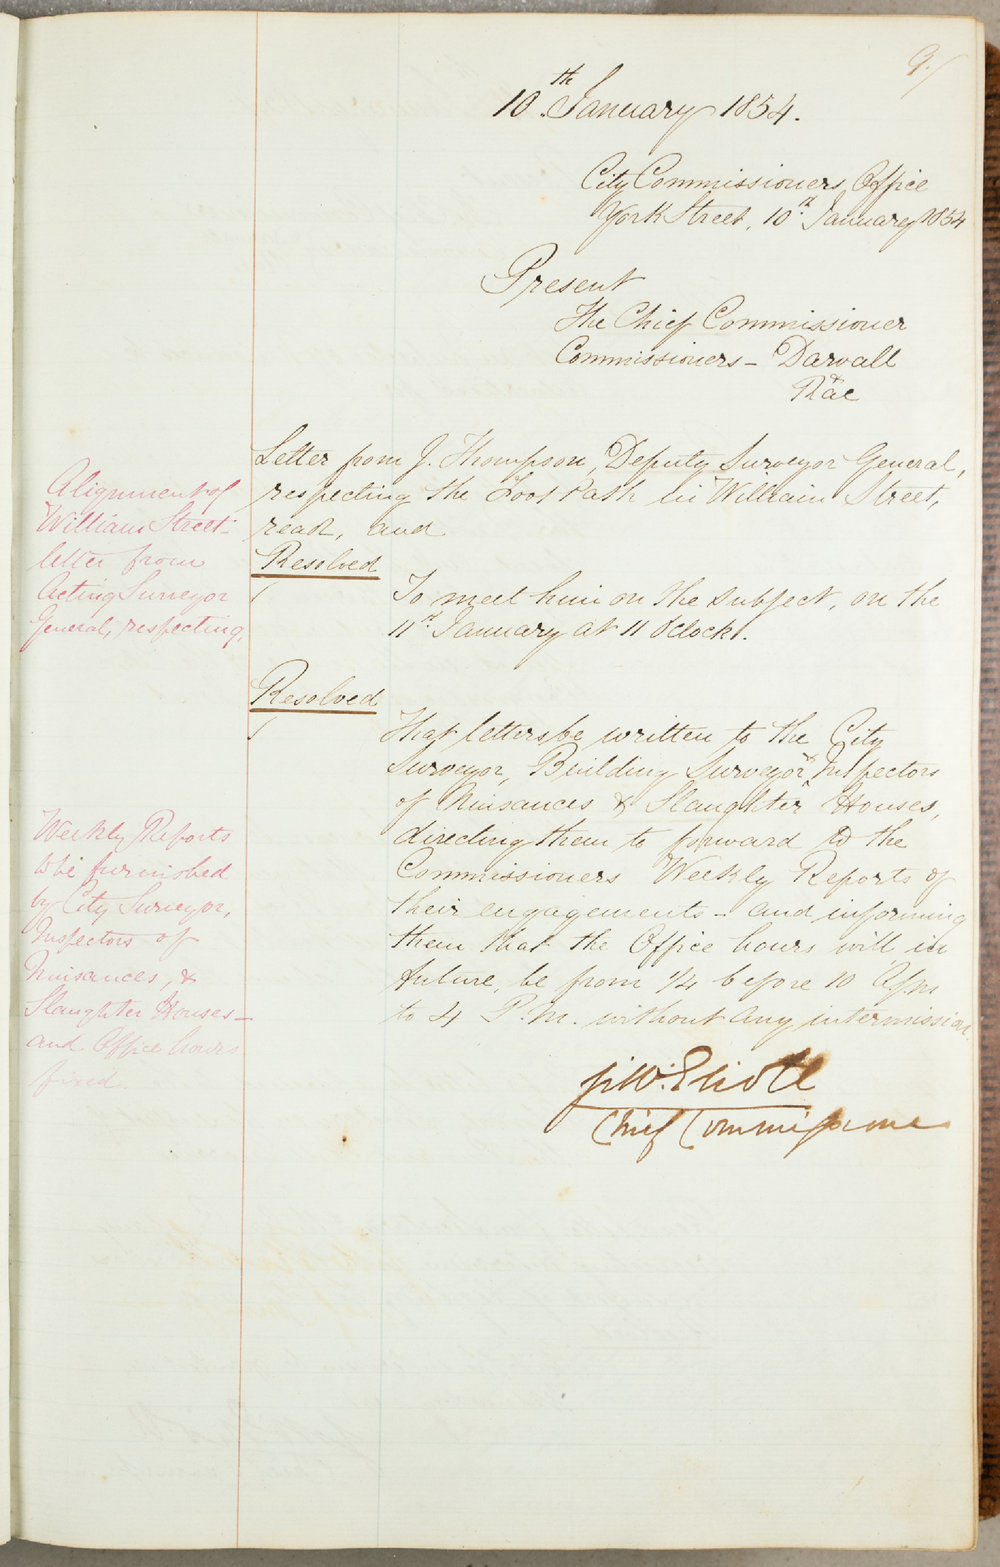 9./
10th January 1854.
City Commissioners Office
York Street, 10th January 1854
Present
The Chief Commissioner
Commissioners - Darvall
&
Rae
Letter from J. Thompson, Deputy Surveyor General,
respecting the Foot Path in William Street,
read, and
Resolved
To meet him on the subject, on the
11th January at 11 OClock.
Alignment of
William Street-
letter from
Acting Surveyor
General, respecting.
Resolved
That letters be written to the City
Surveyor, Building Surveyor, & Inspectors
of Nuisances & Slaughter Houses,
directing them to forward to the
Commissioners Weekly Reports of
their engagements - and informing
them that the Office hours will, in
future, be from 1/4 before 10 A/m
to 4 P.M. without any intermission.
Weekly Reports
to be furnished
by City Surveyor,
Inspectors of
Nuisances, &
Slaughter Houses-
and Office hours
fixed.
G.W. Eliott
Chief Commissioner